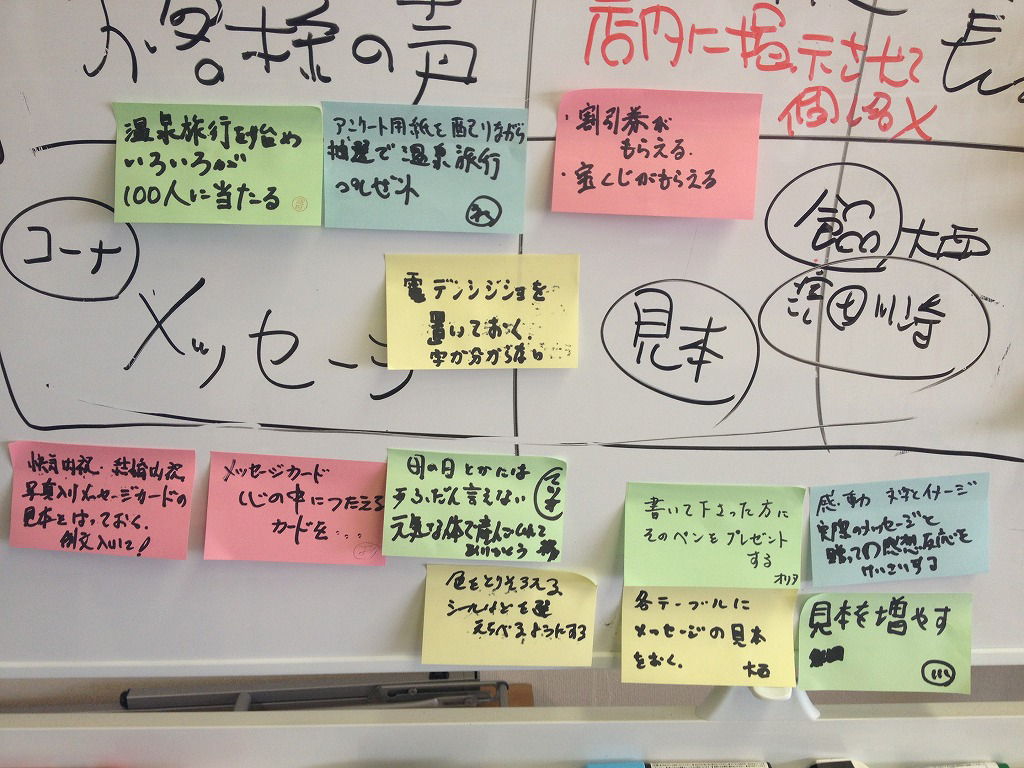 お客様の声
店内に掲示させて
個人名 X
温泉旅行を始め
いろいろが
100人に当たる
アンケート用紙を配りながら
抽選で温泉旅行
プレゼント
・割引券が
もらえる.
・宝くじがもらえる
コーナ
メッセージ
電
置いておく.
字が分からない
見本
大西
川崎
写真入りメッセージカードの
見本とはっておく.
例文入りで!
メッセージカード
くじの中につたえる
カードを....
母の日とかには
ふだん言えない
ありがとう
書いて下さった方に
そのペンをプレゼント
する
オリタ
感動 文字とイメージ
実際のメッセージと
贈っての感想反応を
けいさいする
色をとりそろえる
シールなどを選
えらべるようにする
各テーブルに
メッセージの見本
をおく.
大西
見本を増やす